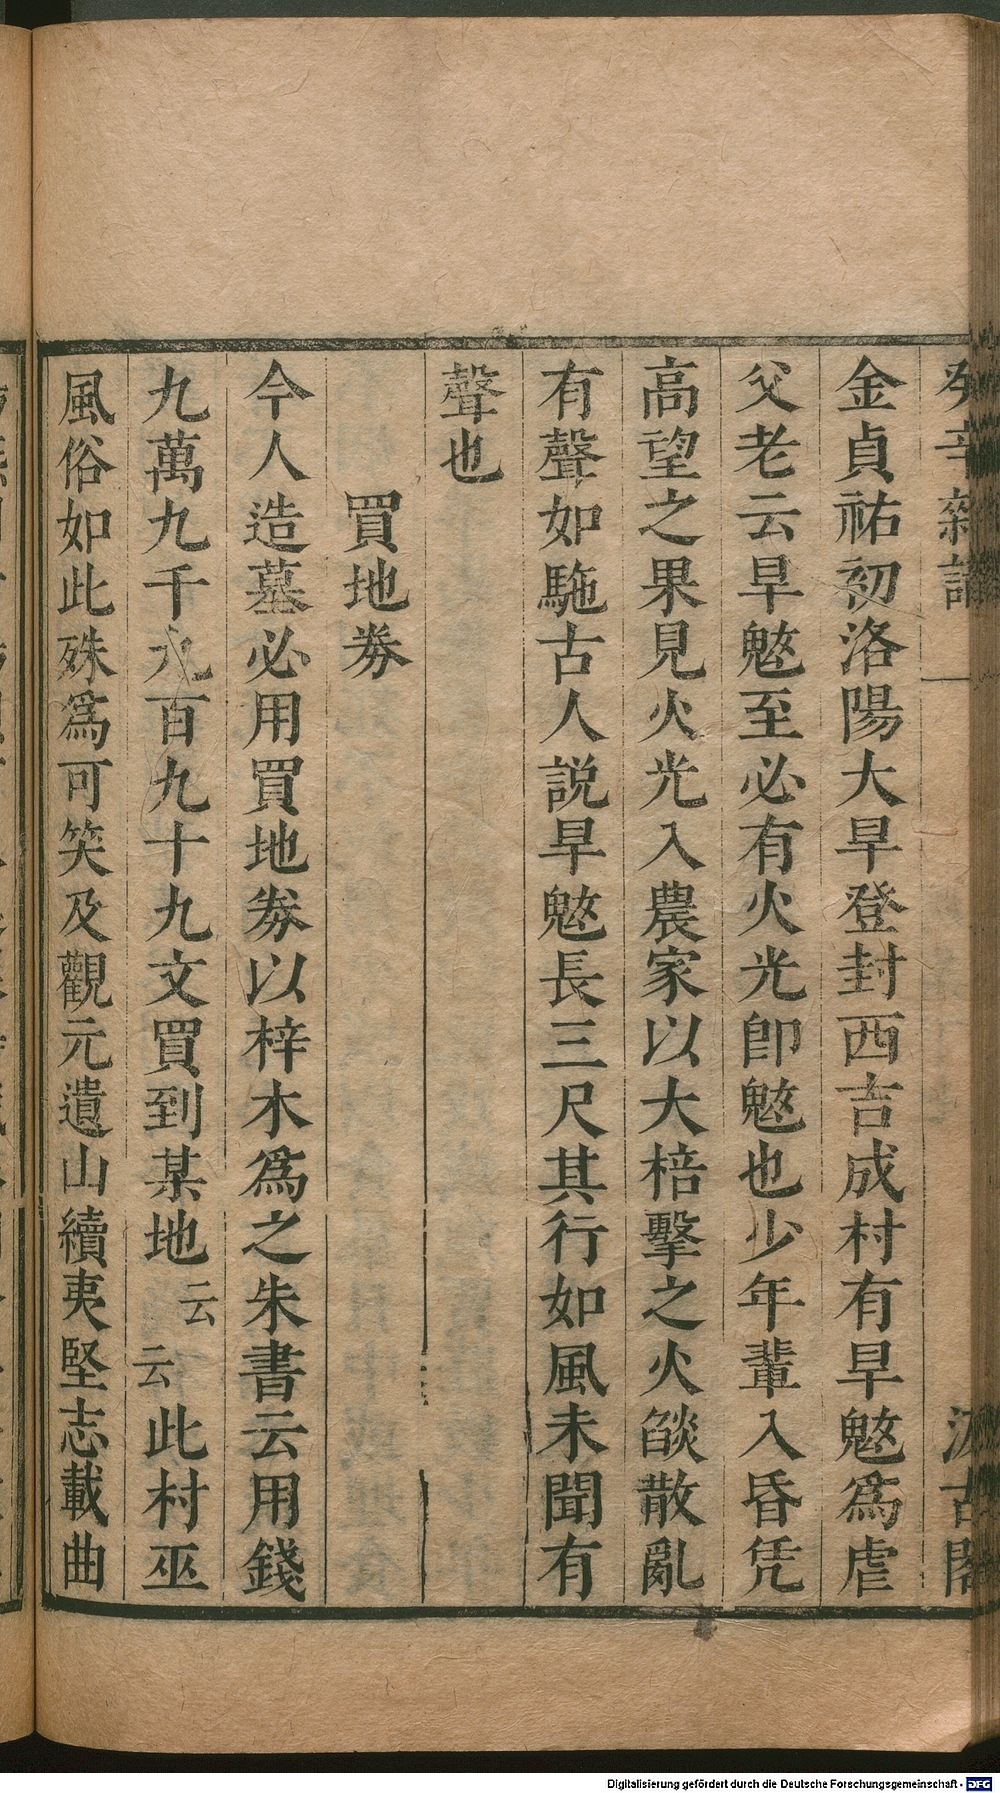 癸辛雜識 一 汲古閣
金貞祐初洛陽大旱登封西吉成村有旱魃爲虐
父老云旱魃至必有火光卽魃也少年輩入昏凭
高望之果見火光入農家以大棓擊之火燄散亂
有聲如駞古人説旱魃長三尺其行如風未聞有
聲也
買地券
今人造墓必用買地券以梓木爲之朱書云用錢
九萬九千九百九十九文買到某地云云此村巫
風俗如此殊爲可笑及觀元遺山續夷堅志載曲
Digitalisierung gefördert durch die Deutsche Forschungsgemeinschaft - DFG